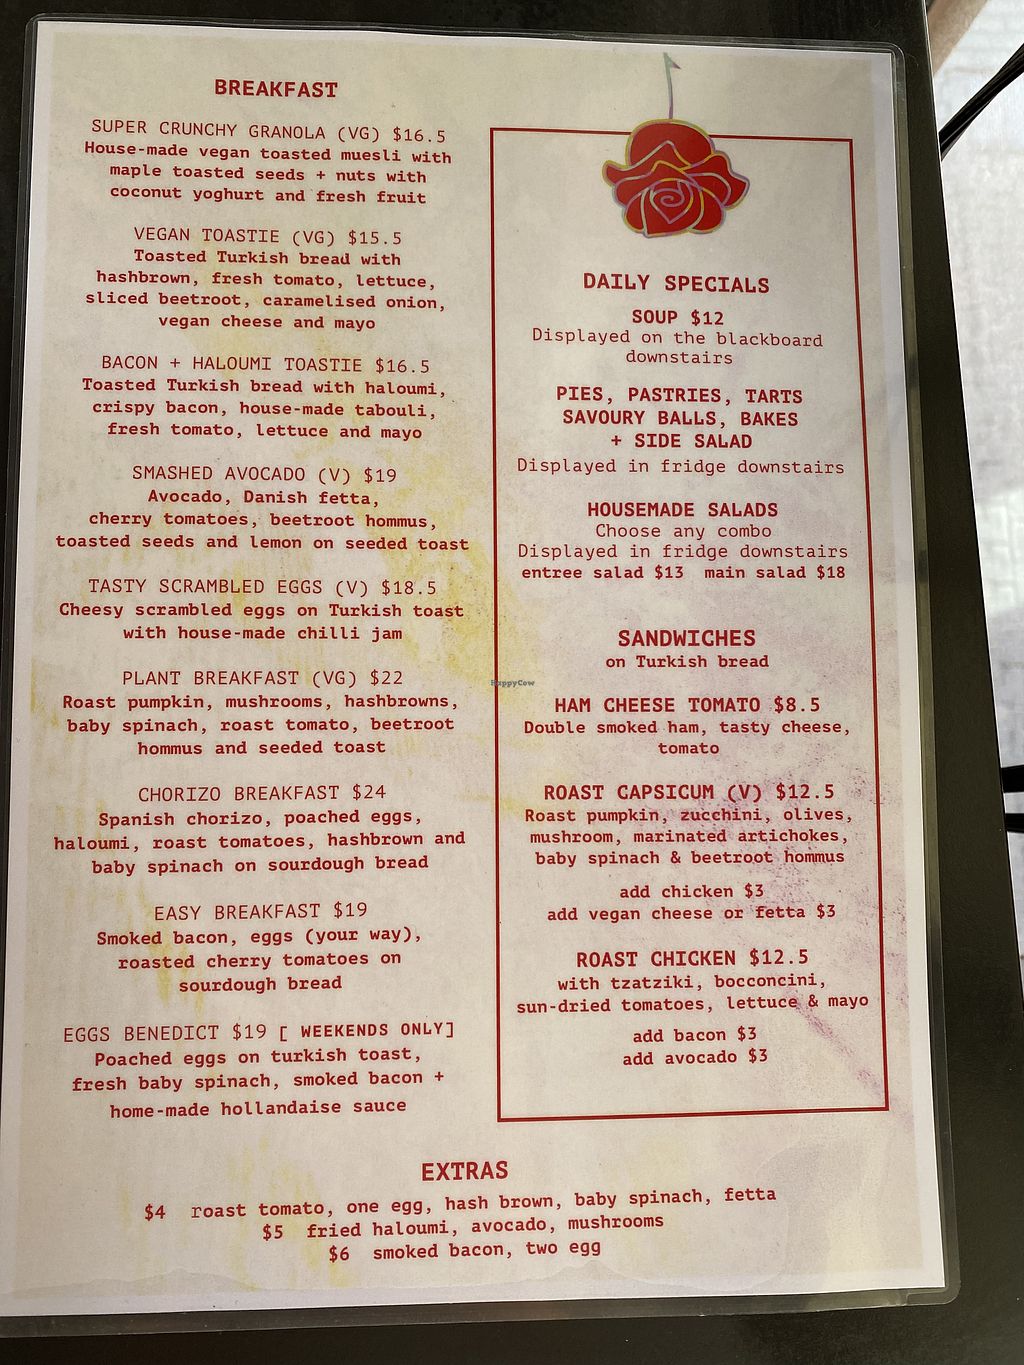 BREAKFAST
SUPER CRUNCHY GRANOLA (VG) $16.5
House-made vegan toasted muesli with
maple toasted seeds + nuts with
coconut yoghurt and fresh fruit
VEGAN TOASTIE (VG) $15.5
Toasted Turkish bread with
hashbrown, fresh tomato, lettuce,
sliced beetroot, caramelised onion,
vegan cheese and mayo
BACON + HALOUMI TOASTIE $16.5
Toasted Turkish bread with haloumi,
crispy bacon, house-made tabouli,
fresh tomato, lettuce and mayo
SMASHED AVOCADO (V) $19
Avocado, Danish fetta,
cherry tomatoes, beetroot hommus,
toasted seeds and lemon on seeded toast
TASTY SCRAMBLED EGGS (V) $18.5
Cheesy scrambled eggs on Turkish toast
with house-made chilli jam
PLANT BREAKFAST (VG) $22
Roast pumpkin, mushrooms, hashbrowns,
baby spinach, roast tomato, beetroot
hommus and seeded toast
CHORIZO BREAKFAST $24
Spanish chorizo, poached eggs,
haloumi, roast tomatoes, hashbrown and
baby spinach on sourdough bread
EASY BREAKFAST $19
Smoked bacon, eggs (your way),
roasted cherry tomatoes on
sourdough bread
EGGS BENEDICT $19 [ WEEKENDS ONLY]
Poached eggs on turkish toast,
fresh baby spinach, smoked bacon +
home-made hollandaise sauce
DAILY SPECIALS
SOUP $12
Displayed on the blackboard
downstairs
PIES, PASTRIES, TARTS
SAVOURY BALLS, BAKES
+ SIDE SALAD
Displayed in fridge downstairs
HOUSEMADE SALADS
Choose any combo
Displayed in fridge downstairs
entree salad $13 main salad $18
SANDWICHES
on Turkish bread
HappyCow
HAM CHEESE TOMATO $8.5
Double smoked ham, tasty cheese,
tomato
ROAST CAPSICUM (V) $12.5
Roast pumpkin, zucchini, olives,
mushroom, marinated artichokes,
baby spinach & beetroot hommus
add chicken $3
add vegan cheese or fetta $3
ROAST CHICKEN $12.5
with tzatziki, bocconcini,
sun-dried tomatoes, lettuce & mayo
add bacon $3
add avocado $3
EXTRAS
$4 roast tomato, one egg, hash brown, baby spinach, fetta
$5 fried haloumi, avocado, mushrooms
$6 smoked bacon, two egg